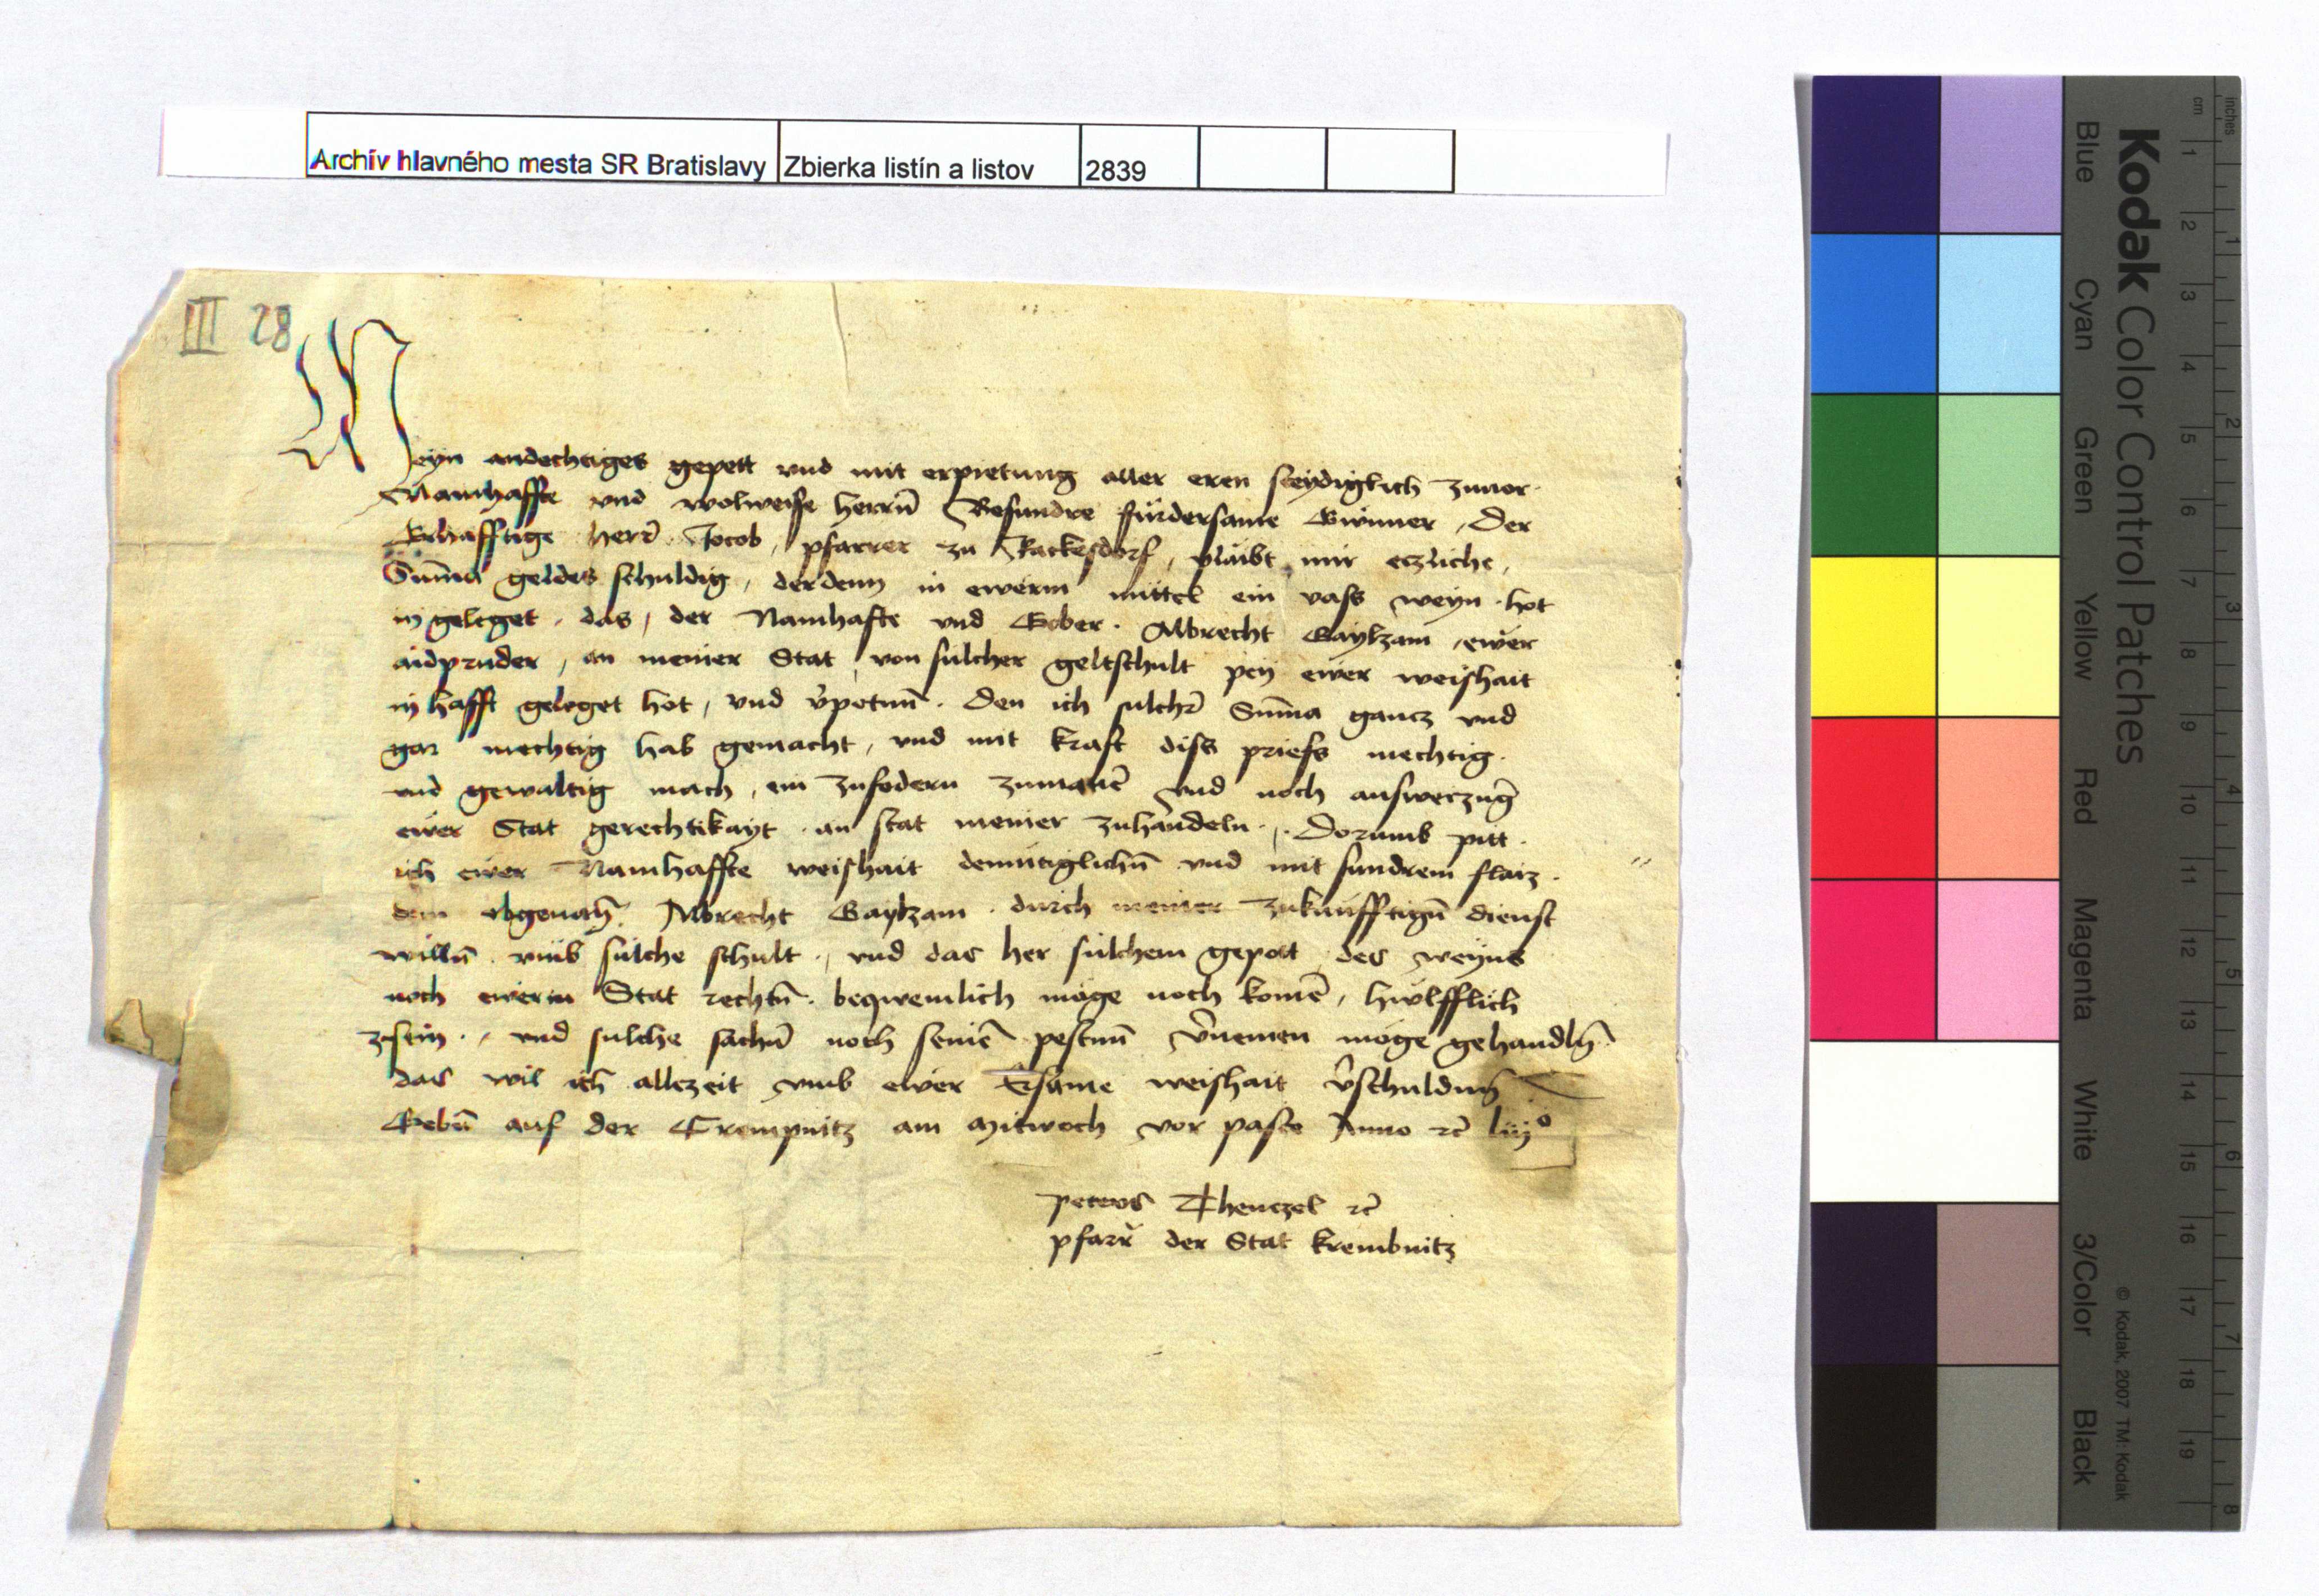 Archív hlavného mesta SR Bratislavy Zbierka listín a listov 2839
III 28
Meyn andechtiges gepett vnd mit erpietung aller eren steydiglich zuuor.
Namhaffte vnd wolweise herrn̄ Besundre fürdersame Gwnner, Der
Erhafftige herr̄ Jocob, pfarrer zu Rackesdorf, plaibt mir etzliche,
Sum̄a geldes schuldig, derdenn in ewerm mittel ein vass weyn. hot
in geleget. das, der Namhafte vnd Erber. Albrecht Gaylzam, ewer
aidpruder, an meiner Stat, von sulcher geltschult pey ewer weishait
in hafft geleget hot, vnd v̄potn̄. den ich sulchr̄ Sum̄a gancz vnd
gar mechtig hab gemacht, vnd mit kraft diss priefs mechtig.
vnd gewaltig mach, ein zufodern vnd noch ausweczūg
ewer Stat gerechtikayt. an stat meiner zuhandeln. Dorumb pitt.
ich ewer Namhaffte weishait demütiglichn̄ vnd mit sundrem flaiz.
dem obgenan̄. Albrecht Gaylzam. durch meiner zukunfftign̄ dienst
willn̄. vmb sulche schult., vnd das her sulchem gepott des weyns
noch ewerm Stat rechtn̄. beqwemlich möge noch komē, hwlfflich
zusein., vnd sulche sachn̄ noch seinē pestnn̄ v̄nemen möge gehandln̄.
das wil ich allczeit vmb ewer Ersame weishait v̄schuldnn̄
Gebn̄ auf der Crempnitz am Mitwoch vor paste Anno ꝛc̄ liijᵒ
petrus Thenczel ꝛc̄
pfarr̄ der Stat krembnitz
Kodak Color Control Patches
Blue Cyan Green Yellow Red Magenta White 3/Color Black
© Kodak, 2007 TM: Kodak
inches 1 2 3 4 5 6 7 8
cm 1 2 3 4 5 6 7 8 9 10 11 12 13 14 15 16 17 18 19